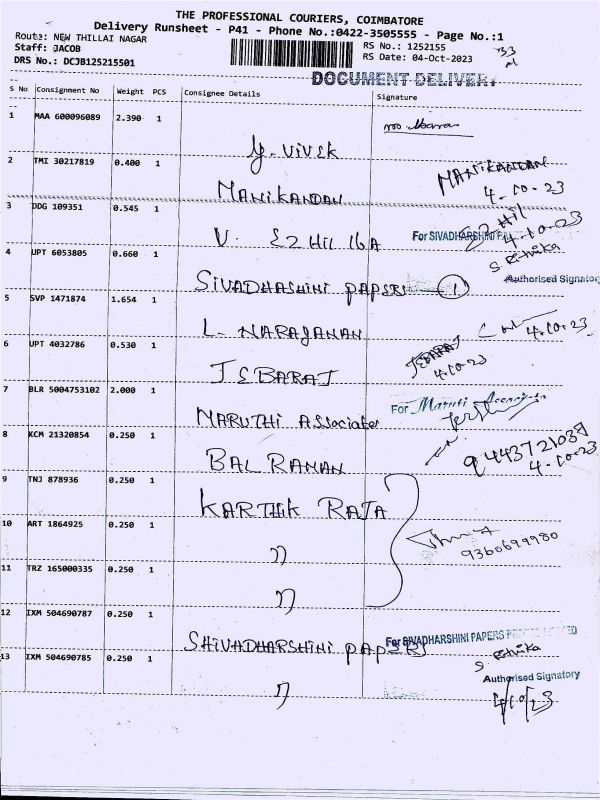 THE PROFESSIONAL COURIERS, COIMBATORE
Delivery Runsheet - P41 - Phone No.:0422-3505555 - Page No.:1
Route: NEW THILLAI NAGAR
Staff: JACOB
DRS No.: DCJB125215501
RS No.: 1252155
RS Date: 04-Oct-2023
DOCUMENT DELIVERY
S No Consignment No Weight PCS Consignee Details Signature
1 MAA 600096089 2.390 1
Y. VIVEK
2 TMI 30217819 0.400 1
MANIKANDAN MANIKANDAN
4-10-23
3 DDG 109351 0.545 1
V. EZHIL
4-10-23
For SIVADHARSHINI
S. Rithika
4 UPT 6053805 0.660 1
Authorised Signatory
SIVADHASHINI PAPERS 1
5 SVP 1471874 1.654 1
L. NARAYANAN
4-10-23
6 UPT 4032786 0.530 1
JEBARAJ JEBARAJ
4-10-23
7 BLR 5004753102 2.000 1
MARUTHI Associates For Maruti Associates
8 KCM 21320854 0.250 1
BAL RAMAN 9443721039
4-10-23
9 TNJ 878936 0.250 1
KARTHIK RAJA
10 ART 1864925 0.250 1
"
9360699980
11 TRZ 165000335 0.250 1
"
12 IXM 504690787 0.250 1
SHIVADHARSHINI PAPERS For SIVADHARSHINI PAPERS PRIVATE LIMITED
S. Rithika
13 IXM 504690785 0.250 1
Authorised Signatory
"
4/10/23